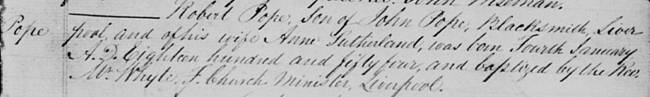 Robert Pope, Son of John Pope, Blacksmith, Liver
Pope pool, and of his wife Anne Sutherland, was born fourth January
A.D. Eighteen hundred and fifty four, and baptized by the Rev.
Mr. Whyte, F. Church Minister, Liverpool.